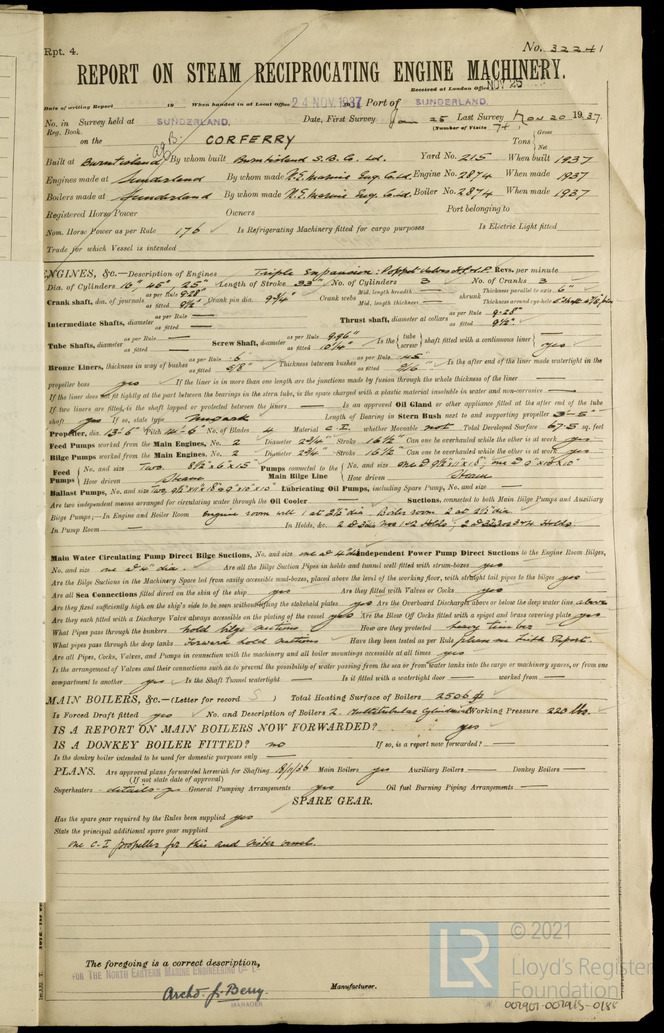 Rpt. 4.
No. 32241
REPORT ON STEAM RECIPROCATING ENGINE MACHINERY.
Received at London Office NOV 25
Date of writing Report 19 When handed in at Local Office 24 NOV. 1937 Port of SUNDERLAND.
No. in Survey held at SUNDERLAND. Date, First Survey Jan 25 Last Survey Nov 20 1937
Reg. Book. (Number of Visits 74)
on the CORFERRY Tons Gross Net
Built at Burntisland By whom built Burntisland S.B. Co. Ld. Yard No. 215 When built 1937
Engines made at Sunderland By whom made N.E. Marine Eng. Co. Ld. Engine No. 2874 When made 1937
Boilers made at Sunderland By whom made N.E. Marine Eng. Co. Ld. Boiler No. 2874 When made 1937
Registered Horse Power Owners Port belonging to
Nom. Horse Power as per Rule 176 Is Refrigerating Machinery fitted for cargo purposes Is Electric Light fitted
Trade for which Vessel is intended
ENGINES, &c.—Description of Engines Triple Expansion: Poppet Valves Revs. per minute
Dia. of Cylinders Length of Stroke 33" No. of Cylinders 3 No. of Cranks 3
Crank shaft, dia. of journals as per Rule 9.28" as fitted 9½" Crank pin dia. 9¾" Crank webs Mid. length breadth Mid. length thickness shrunk Thickness parallel to axis 6" Thickness around eye-hole
Intermediate Shafts, diameter as per Rule as fitted Thrust shaft, diameter at collars as per Rule 9.28" as fitted 9½"
Tube Shafts, diameter as per Rule as fitted Screw Shaft, diameter as per Rule 9.96" as fitted 10¼" Is the tube screw shaft fitted with a continuous liner yes
Bronze Liners, thickness in way of bushes as per Rule .6" as fitted 5/8" Thickness between bushes as per Rule .45" as fitted Is the after end of the liner made watertight in the
propeller boss yes If the liner is in more than one length are the junctions made by fusion through the whole thickness of the liner —
If the liner does not fit tightly at the part between the bearings in the stern tube, is the space charged with a plastic material insoluble in water and non-corrosive —
If two liners are fitted, is the shaft lapped or protected between the liners — Is an approved Oil Gland or other appliance fitted at the after end of the tube
shaft yes If so, state type Newark Length of Bearing in Stern Bush next to and supporting propeller 3'-5"
Propeller, dia. 13'-6" Pitch 14'-6" No. of Blades 4 Material C.I. whether Moveable not Total Developed Surface 67.5 sq. feet
Feed Pumps worked from the Main Engines, No. 2 Diameter 2¾" Stroke 16½" Can one be overhauled while the other is at work yes
Bilge Pumps worked from the Main Engines, No. 2 Diameter 2¾" Stroke 16½" Can one be overhauled while the other is at work yes
Feed Pumps No. and size Two. 8½"x6"x15" How driven Steam Pumps connected to the Main Bilge Line No. and size How driven Steam
Ballast Pumps, No. and size Lubricating Oil Pumps, including Spare Pump, No. and size —
Are two independent means arranged for circulating water through the Oil Cooler — Suctions, connected to both Main Bilge Pumps and Auxiliary
Bilge Pumps;—In Engine and Boiler Room Engine room well 1 at 2½ dia. Boiler room 2 at 2½ dia
In Pump Room — In Holds, &c.
Main Water Circulating Pump Direct Bilge Suctions, No. and size one @ 4" dia Independent Power Pump Direct Suctions to the Engine Room Bilges,
No. and size one @ 4" dia. Are all the Bilge Suction Pipes in holds and tunnel well fitted with strum-boxes yes
Are the Bilge Suctions in the Machinery Space led from easily accessible mud-boxes, placed above the level of the working floor, with straight tail pipes to the bilges yes
Are all Sea Connections fitted direct on the skin of the ship yes Are they fitted with Valves or Cocks yes
Are they fixed sufficiently high on the ship's side to be seen without lifting the stokehold plates yes Are the Overboard Discharges above or below the deep water line above
Are they each fitted with a Discharge Valve always accessible on the plating of the vessel yes Are the Blow Off Cocks fitted with a spigot and brass covering plate yes
What Pipes pass through the bunkers hold bilge suctions How are they protected heavy timber
What pipes pass through the deep tanks Forward hold suctions Have they been tested as per Rule
Are all Pipes, Cocks, Valves, and Pumps in connection with the machinery and all boiler mountings accessible at all times yes
Is the arrangement of Valves and their connections such as to prevent the possibility of water passing from the sea or from water tanks into the cargo or machinery spaces, or from one
compartment to another yes Is the Shaft Tunnel watertight — Is it fitted with a watertight door — worked from —
MAIN BOILERS, &c.—(Letter for record S) Total Heating Surface of Boilers 2506 sq. ft.
Is Forced Draft fitted yes No. and Description of Boilers 2. Multitubular Cylindrical Working Pressure 220 lbs.
IS A REPORT ON MAIN BOILERS NOW FORWARDED? yes
IS A DONKEY BOILER FITTED? no If so, is a report now forwarded? —
Is the donkey boiler intended to be used for domestic purposes only —
PLANS. Are approved plans forwarded herewith for Shafting Main Boilers yes Auxiliary Boilers — Donkey Boilers —
(If not state date of approval)
Superheaters General Pumping Arrangements yes Oil fuel Burning Piping Arrangements —
SPARE GEAR.
Has the spare gear required by the Rules been supplied yes
State the principal additional spare gear supplied
one C.I. propeller for this and sister vessel.
The foregoing is a correct description,
FOR THE NORTH EASTERN MARINE ENGINEERING Co Ld
Archd. J. Berry. Manufacturer.
MANAGER
LR © 2021
Lloyd's Register
Foundation
002907-002915-0188